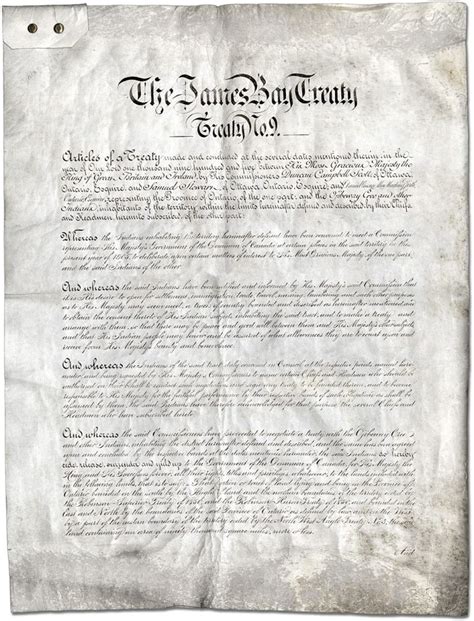 The James Bay Treaty
Treaty No. 9.
Articles of a Treaty made and concluded at the several dates mentioned therein in the
year of Our Lord one thousand nine hundred and five between His Most Gracious Majesty the
King of Great Britain and Ireland by His Commissioners Duncan Campbell Scott of Ottawa
Ontario, Esquire, and Samuel Stewart of Ottawa Ontario, Esquire, and
representing the Province of Ontario, of the one part, and the Ojibeway Cree and other
Indians, inhabitants of the territory within the limits hereinafter defined and described by their Chiefs
and Headmen hereunto subscribed, of the other part:
Whereas the Indians inhabiting the territory hereinafter defined have been convened to meet a Commission
representing His Majesty's Government of the Dominion of Canada at certain places in the said territory in this
present year of 1905 to deliberate upon certain matters of interest to His Most Gracious Majesty of the one part
and the said Indians of the other
And whereas the said Indians have been notified and informed by His Majesty's said Commission that
it is His desire to open for settlement, immigration, trade, travel, mining, lumbering and such other purposes
as to His Majesty may seem meet, a tract of country bounded and described as hereinafter mentioned and
to obtain the consent thereto of His Indian subjects inhabiting the said tract, and to make a treaty and
arrange with them, so that there may be peace and good will between them and His Majesty's other subjects
and that His Indian people may know and be assured of what allowances they are to count upon and
receive from His Majesty's bounty and benevolence.
And whereas the Indians of the said tract duly convened in Council at the respective points named here
under, and being requested by His Majesty's Commissioners to name certain Chiefs and Headmen who should be
authorized on their behalf to conduct such negotiations and sign any treaty to be founded thereon, and to become
responsible to His Majesty for the faithful performance by their respective bands of such obligations as shall be
assumed by them, the said Indians have therefore acknowledged for that purpose the several Chiefs and
Headmen who have subscribed hereto.
And whereas the said Commissioners have proceeded to negotiate a treaty with the Ojibeway Cree
and other Indians inhabiting the district hereinafter defined and described, and the same has been agreed
upon and concluded by the respective bands at the dates mentioned hereunder, the said Indians do hereby
cede, release, surrender and yield up to the Government of the Dominion of Canada, for His Majesty the
King and His Successors for ever, all their rights, titles and privileges whatsoever to the lands included with
in the following limits, that is to say: That portion or tract of land lying and being in the Province of
Ontario, bounded on the south by the height of land and the northern boundaries of the territory ceded by
the Robinson-Superior Treaty of 1850, and the Robinson-Huron Treaty of 1850, and bounded on the
East and North by the boundaries of the said Province of Ontario as defined by law, and on the West
by a part of the eastern boundary of the territory ceded by the North West Angle Treaty No. 3, the said
land containing an area of ninety thousand square miles, more or less.
And